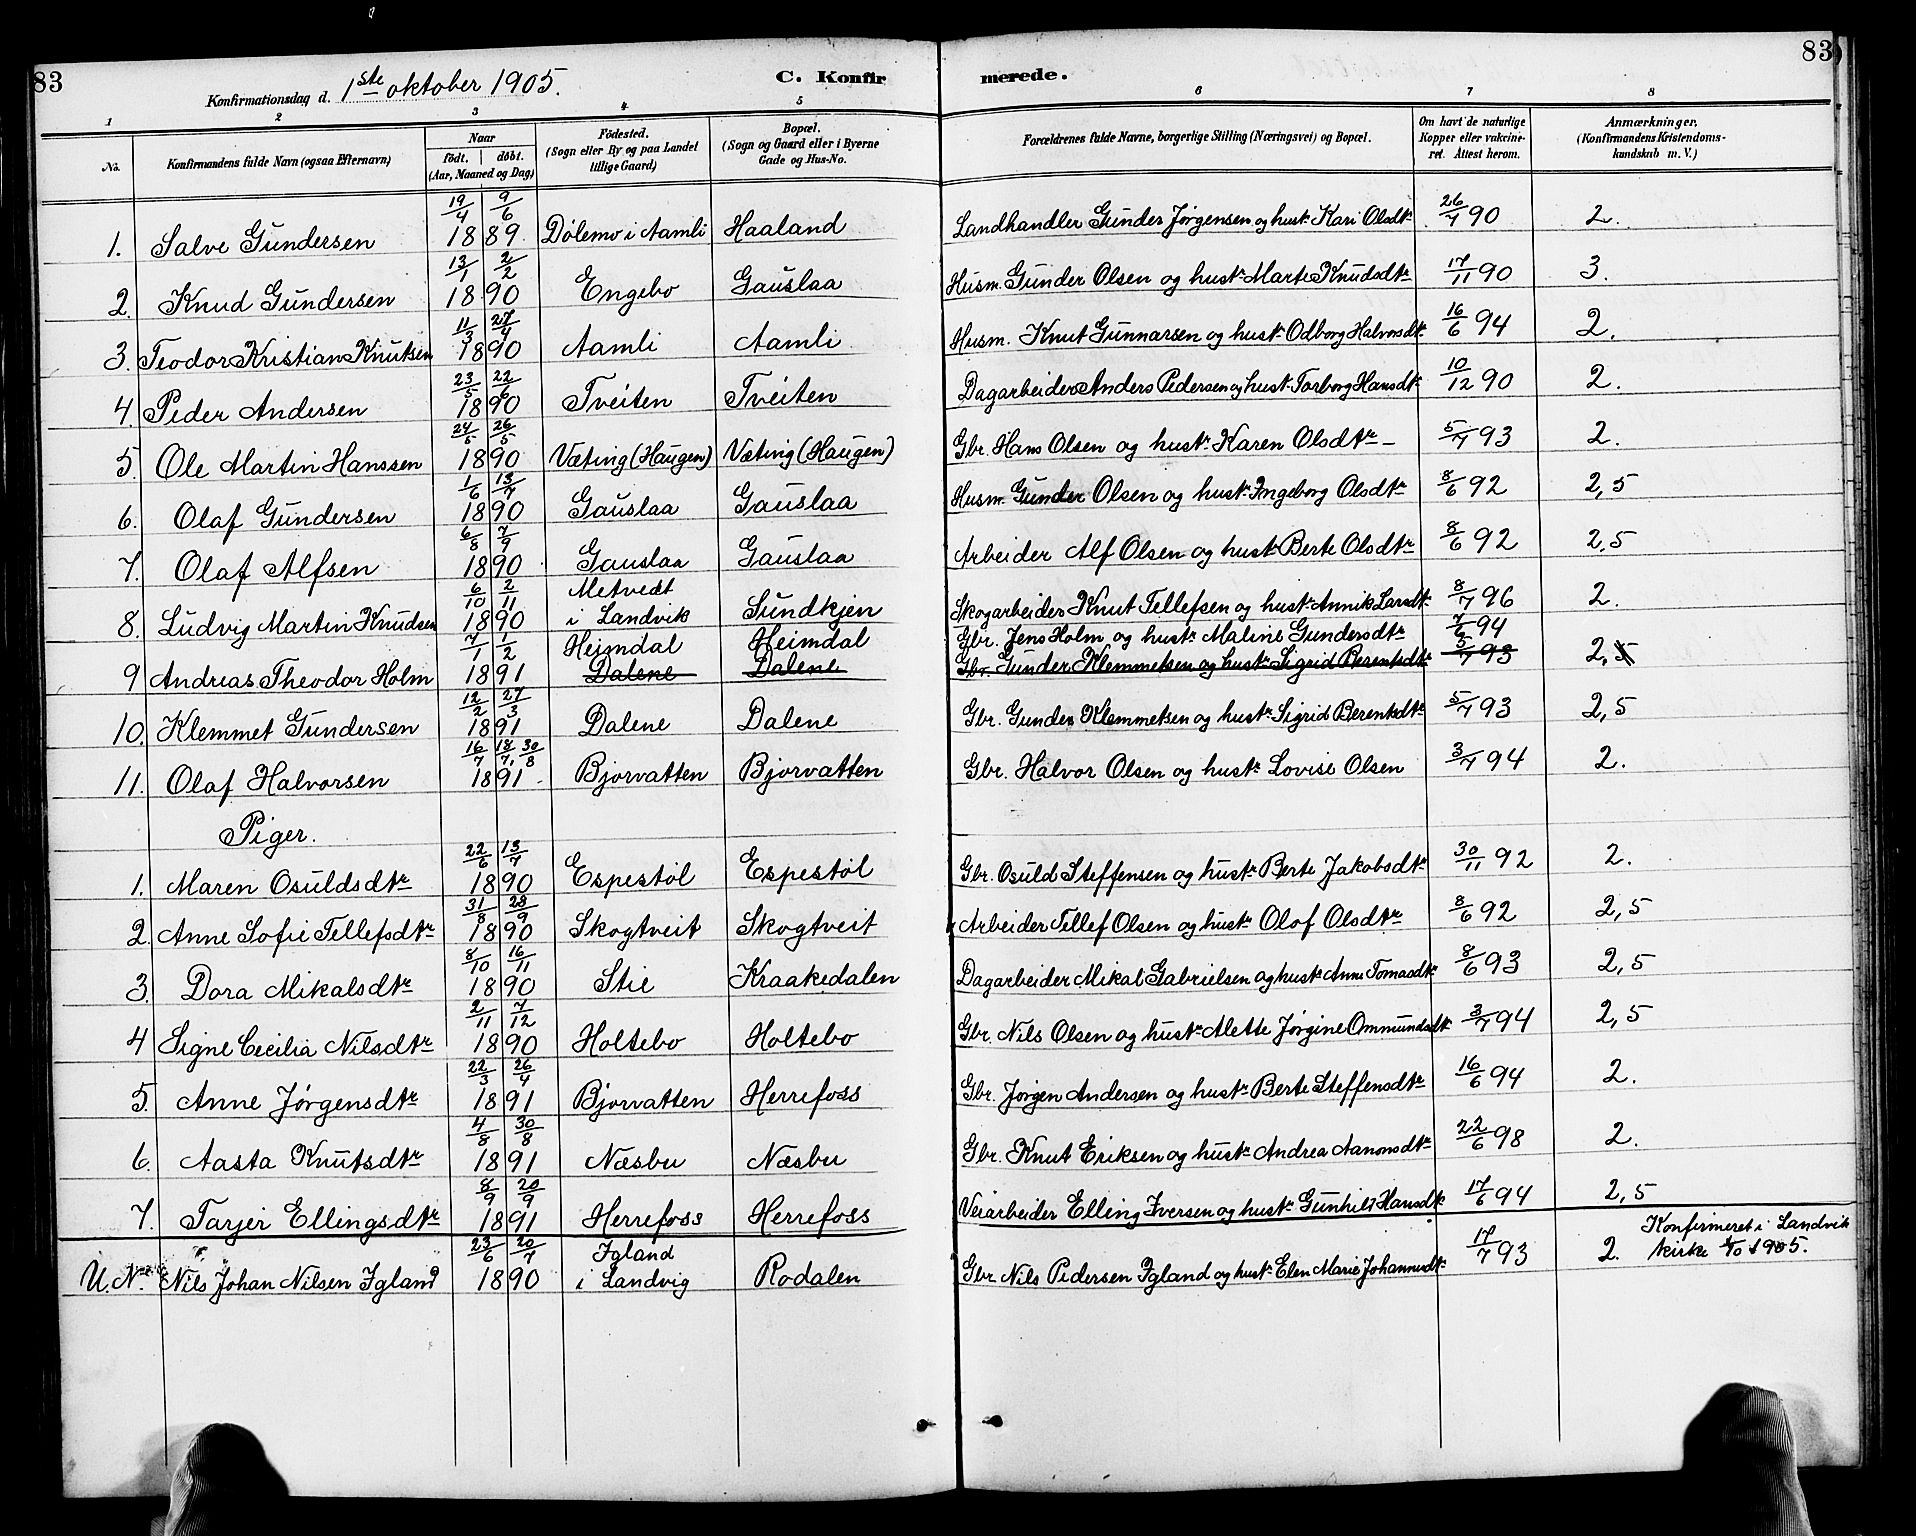 83
83
Konfirmationsdag d. 1ste oktober 1905.
C. Konfirmerede.
1 2 3 4 5 6 7 8
No.
Konfirmandens fulde Navn (ogsaa Efternavn)
Naar
födt. döbt.
(Aar, Maaned og Dag)
Födested.
(Sogn eller By og paa Landet
tillige Gaard)
Bopæl.
(Sogn og Gaard eller i Byerne
Gade og Hus-No.
Forældrenes fulde Navne, borgerlige Stilling (Næringsvei) og Bopæl.
Om havt de naturlige
Kopper eller vakcine-
ret. Attest herom.
Anmærkninger.
(Konfirmandens Kristendoms-
kundskab m. V.)
1. Salve Gundersen 19/4 9/6 1889. Dölemo i Aamli Haaland Landhandler Gunder Jørgensen og hustr. Kari Olsdtr 26/7 90 2.
2. Knud Gundersen 13/1 2/2 1890 Engebo Gauslaa Husm. Gunder Olsen og hustr. Marte Knudsdtr 17/11 90 3.
3. Teodor Kristian Knutsen 11/3 27/4 1890 Aamli Aamli Husm. Knut Gunnarsen og hustr. Odborg Halvorsdtr 16/6 94 2.
4. Peder Andersen 23/5 22/6 1890 Tveiten Tveiten Dagarbeider Anders Pedersen og hustr. Torborg Hansdtr 10/12 90 2.
5. Ole Martin Hanssen 24/5 26/5 1890 Væting (Haugen) Væting (Haugen) Gbr. Hans Olsen og hustr. Karen Olsdtr 5/7 93 2.
6. Olaf Gundersen 1/6 13/7 1890 Gauslaa Gauslaa Husm. Gunder Olsen og hustr. Ingeborg Olsdtr 8/6 92 2,5
7. Olaf Alfsen 6/8 7/9 1890 Gauslaa Gauslaa Arbeider Alf Olsen og hustr. Berte Olsdtr 8/6 92 2,5
8. Ludvig Martin Knudsen 6/10 2/11 1890 Metvedt i Landvik Sundkjen Skogarbeider Knut Tellefsen og hustr. Annik Larsdtr 8/7 96 2.
9 Andreas Theodor Holm 7/1 1/2 1891 Heimdal Heimdal Gbr. Jens Holm og hustr. Maline Gundersdtr 7/6 94
Dalene Dalene Gbr. Gunder Klemmetsen og hustr. Sigrid Berentsdtr 5/7 93 2,5
10. Klemmet Gundersen 12/2 27/3 1891 Dalene Dalene Gbr. Gunder Klemmetsen og hustr. Sigrid Berentsdtr 5/7 93 2,5
11. Olaf Halvorsen 16/7 18/7, 30/8 1891 Bjorvatten Bjorvatten Gbr. Halvor Olsen og hustr. Lovise Olsen 3/7 94 2.
Piger.
1. Maren Osuldsdtr 22/6 13/7 1890 Espestøl Espestøl Gbr. Osuld Steffensen og hustr. Berte Jakobsdtr 30/11 92 2.
2. Anne Sofie Tellefsdtr 31/8 28/9 1890 Skogtveit Skogtveit Arbeider Tellef Olsen og hustr. Olof Olsdtr 8/6 92 2,5
3. Dora Mikalsdtr 8/10 16/11 1890 Stie Kraakedalen Dagarbeider Mikal Gabrielsen og hustr. Anne Tomasdtr 8/6 93 2,5
4 Signe Cecilia Nilsdtr 2/11 7/12 1890 Holtebo Holtebo Gbr. Nils Olsen og hustr. Alette Jørgine Ommundsdtr 3/7 94 2,5
5. Anne Jørgensdtr 22/3 26/4 1891 Bjorvatten Herrefoss Gbr. Jørgen Andersen og hustr. Berte Steffensdtr 16/6 94 2.
6. Aasta Knutsdtr 4/8 30/8 1891 Næsbu Næsbu Gbr. Knut Eriksen og hustr. Andrea Aanonsdtr 22/6 98 2.
7. Tarjer Ellingsdtr 8/9 20/9 1891 Herrefoss Herrefoss Veiarbeider Elling Iversen og hustr. Gunhild Hansdtr 17/6 94 2,5
U. Nr. Nils Johan Nilsen Igland 23/6 20/7 1890 Igland i Landvig Rodalen Gbr. Nils Pedersen Igland og hustr. Elen Marie Johannesdtr 17/7 93 2. Konfirmeret i Landvik
kirke 1/10 1905.